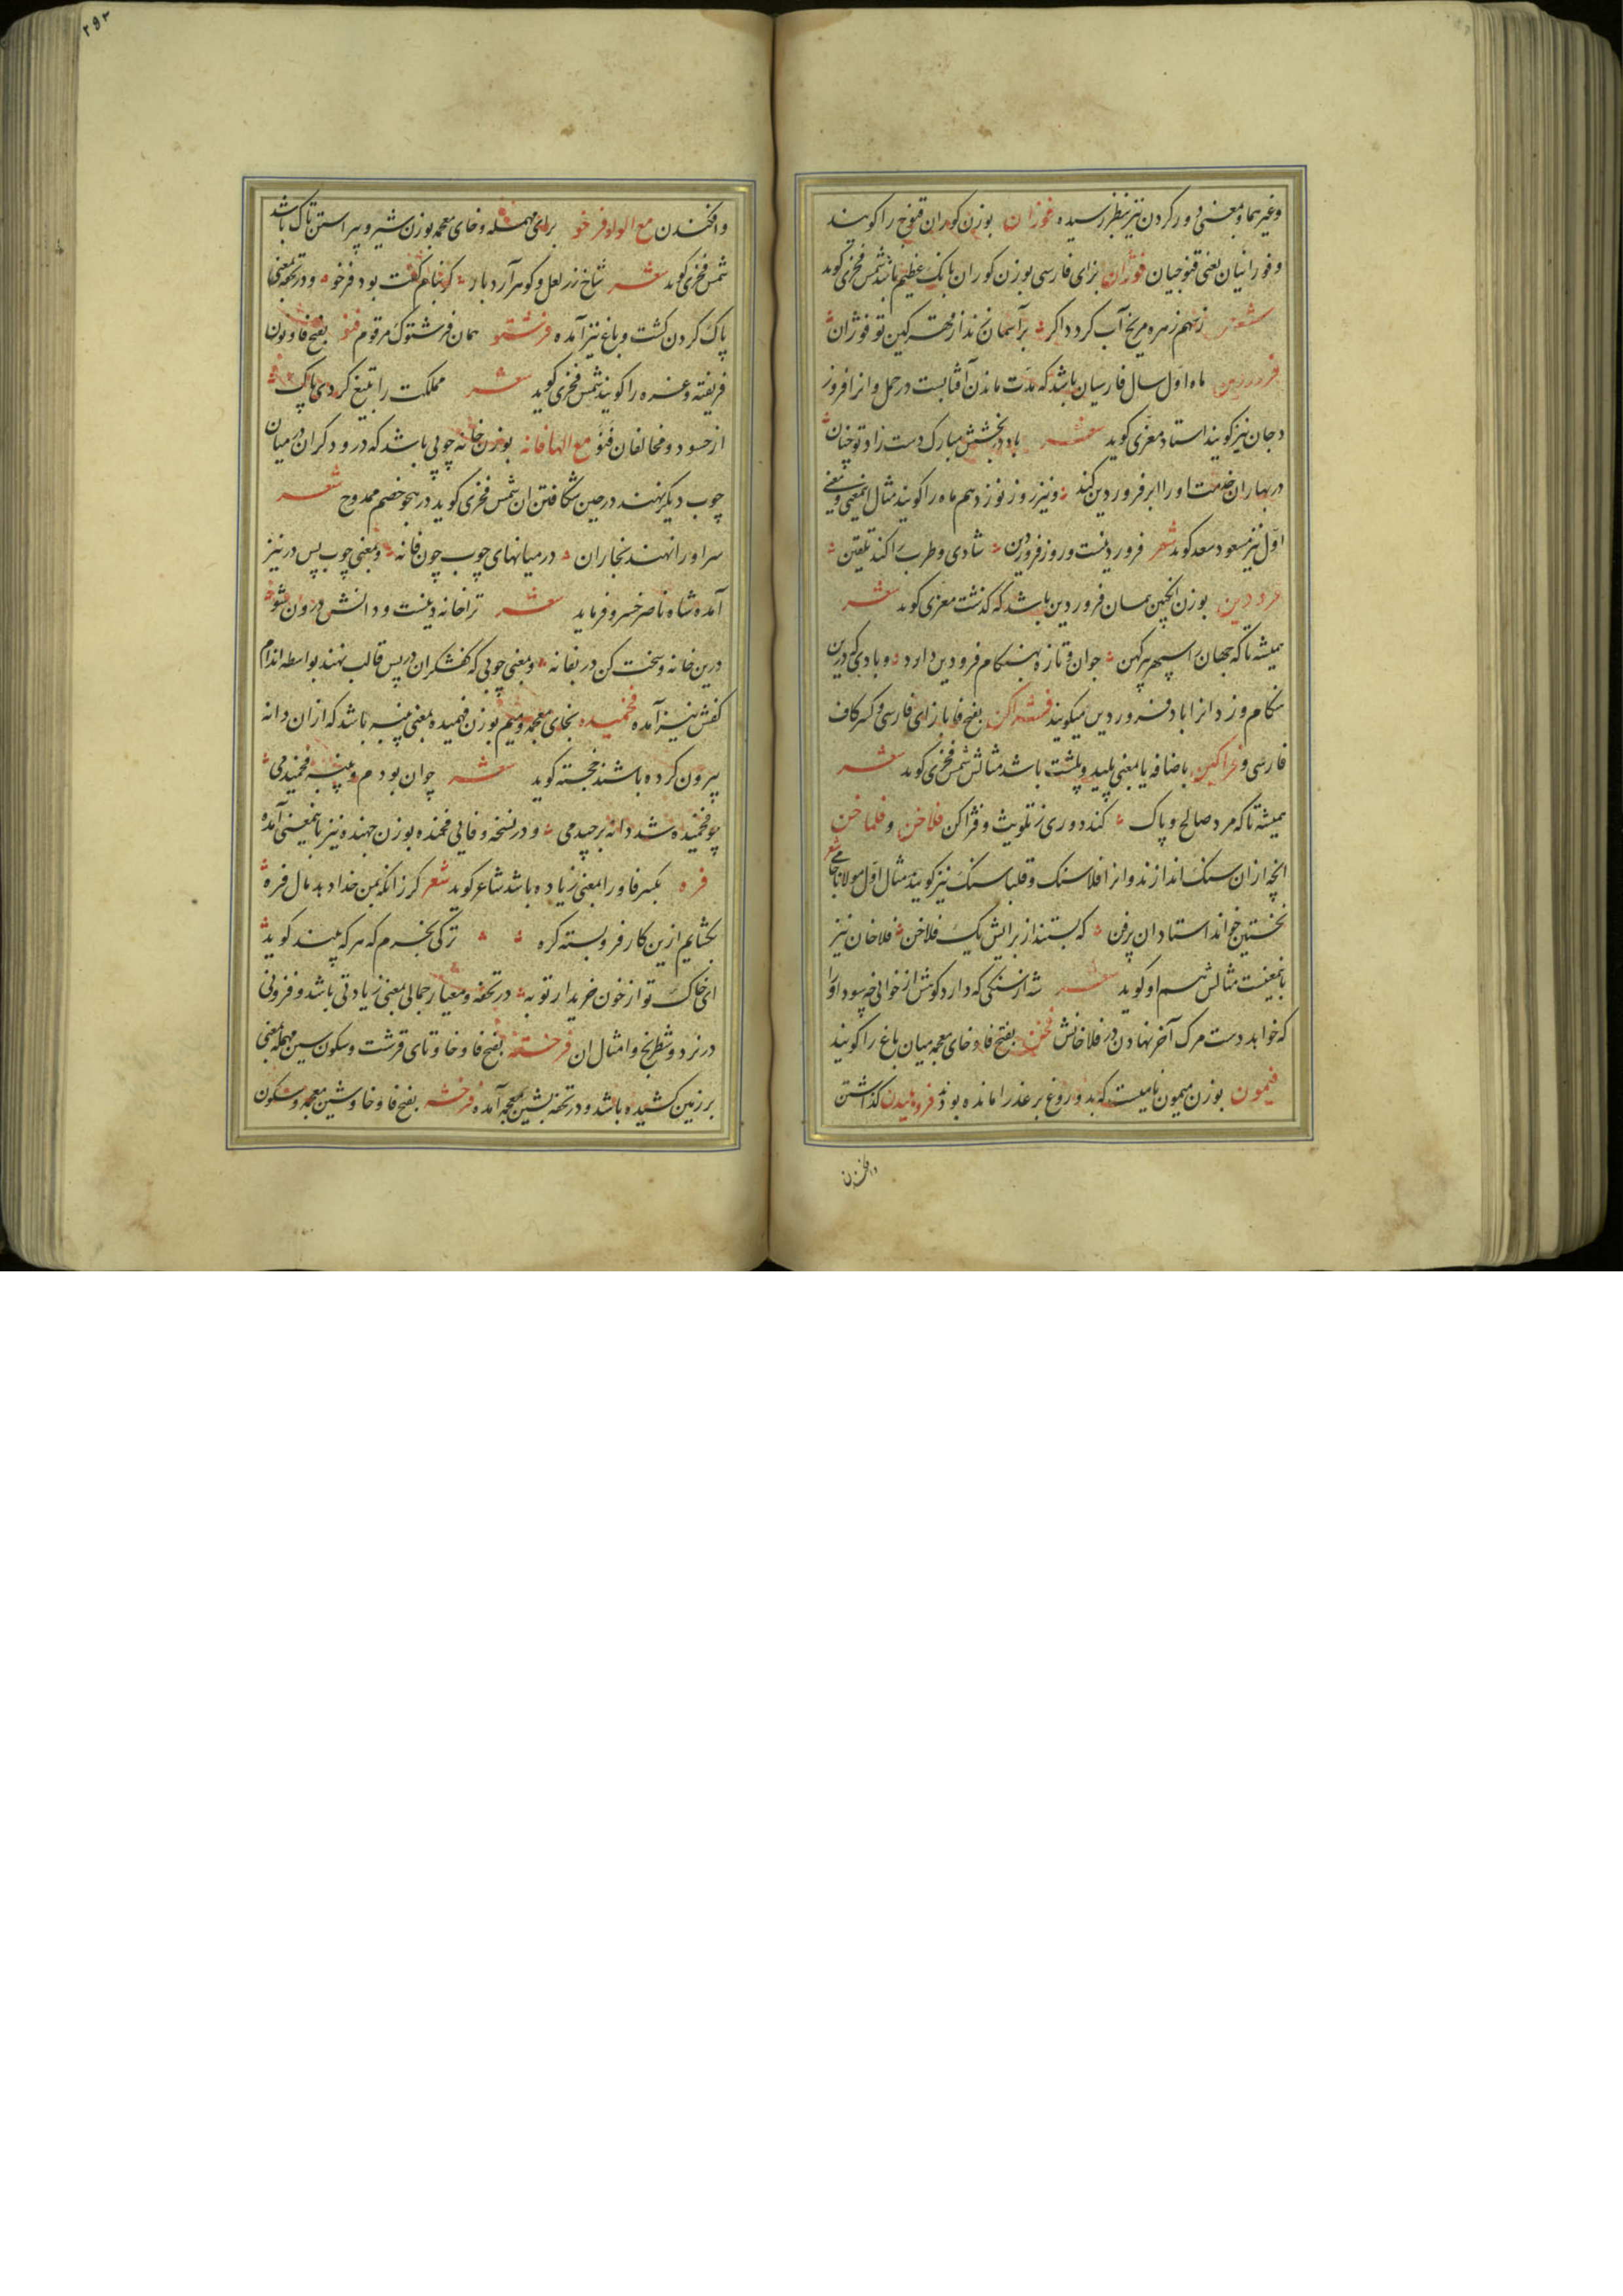 وغیرهما و بمعنی دور کردن نیز بنظر رسیده فوران بوزن کوران قنوج را کویند
و فورانیان یعنی قنوجیان فوژان بزای فارسی بوزن کوران بانک عظیم باشد شمس فخری کوید
شعر ز سهم زهره مریخ آب کردد اکر بر آسمان نخند از قهر کین تو فوژان
فروردین ماه اول سال فارسیان باشد که مدت ماندن آفتابست در حمل و انرا فروز
دجان نیز کویند استاد معزی کوید شعر باد در بخشش مبارک دست زاد تو چنان
در بهاران خدمت او را ابر فروردین کند و نیز روز نوزدهم ماه را کویند مثال اینمعنی و معنی
اول نیز مسعود سعد کوید شعر فروردینست و روز فروردین شادی و طرب را کند تلقین
فرودین بوزن انچین همان فروردین باشد که کذشت معزی کوید شعر
همیشه تا که جهان را سپهر پیر کهن جوان و تازه بهنکام فرودین دارد و بادی که درین
هنکام وزد انرا باد فروردین میکویند فژاکن بفتح فا با زای فارسی و کسر کاف
فارسی و فژاکین باضافه یا بمعنی پلید و پلشت باشد مثالش شمس فخری کوید شعر
همیشه تا که مرد صالح و پاک کند دوری ز تلویث و فژاکن فلاخن و فلماخن
انچه ازان سنک اندازند و انرا فلاسنک و قلباسنک نیز کویند مثال اول مولانا جامی شعر
نخستین خواند استادان پرفن که بستند از برایش یک فلاخن فلاخان نیز
باینمعنیست مثالش هم او کوید شعر شه از سنکی که دارد کوش از خوانی چه سود او را
که خواهد دست مرک آخر نهادن در فلاخانش فخن بفتح فا و خای معجمه میان باغ را کویند
فیمون بوزن میمون نامیست که بدو دروغ بر عذرا مانده بودند فروهلیدن کذاشتن
وافکندن
وافکندن مع الواو فرخو برای مهمله و خای معجمه بوزن شیرو پیراستن تاک باشد
شمس فخری کوید شعر شاخ زر لعل و کوهر آرد بار کر بنام کفت بود فرخو و در تحفه بمعنی
پاک کردن کشت و باغ نیز آمده فرشتو همان فرشتوک مرقوم فنو بفتح فا و نون
فریفته و غره را کویند شمس فخری کوید شعر مملکت را بتیغ کردی پاک
از حسود و مخالفان فنو مع الها فانه بوزن خانه چوبی باشد که درودکران در میان
چوب دیکر نهند در حین شکافتن ان شمس فخری کوید در هجو خصم ممدوح شعر
سر او را نهند نجاران در میانهای چوب چون فانه و بمعنی چوب پس در نیز
آمده شاه ناصر خسرو فرماید شعر ترا خانه دینست و دانش درون شو
درین خانه و سخت کن در بفانه و بمعنی چوبی که کفشکران در پس قالب نهند بواسطه اندام
کفش نیز آمده فخمیده بخای معجمه و میم بوزن فهمیده بمعنی پنبه باشد که ازان دانه
بیرون کرده باشند خجسته کوید شعر جوان بودم و پنبه فخمیدمی
چو فخمیده شد دانه برچیدمی و در نسخه وفایی فخمنده بوزن جهنده نیز باینمعنی آمده
فره بکسر فا و را بمعنی زیاده باشد شاعر کوید شعر کر زانکه بمن خدا دهد مال فره
بکشایم ازین کار فروبسته کره ترکی بخرم که هر که بیند کوید
ای خاک تو از خون خریدار تو به در تحفه و معیار جمالی بمعنی زیادتی باشد و فزونی
در نرد و شطرنج و امثال ان فرخسته بفتح فا و خا و تای قرشت و سکون سین مهمله بمعنی
بر زمین کشیده باشد و در تحفه بشین معجمه آمده فرخشه بفتح فا و خا و شین معجمه و سکون
۲۹۲